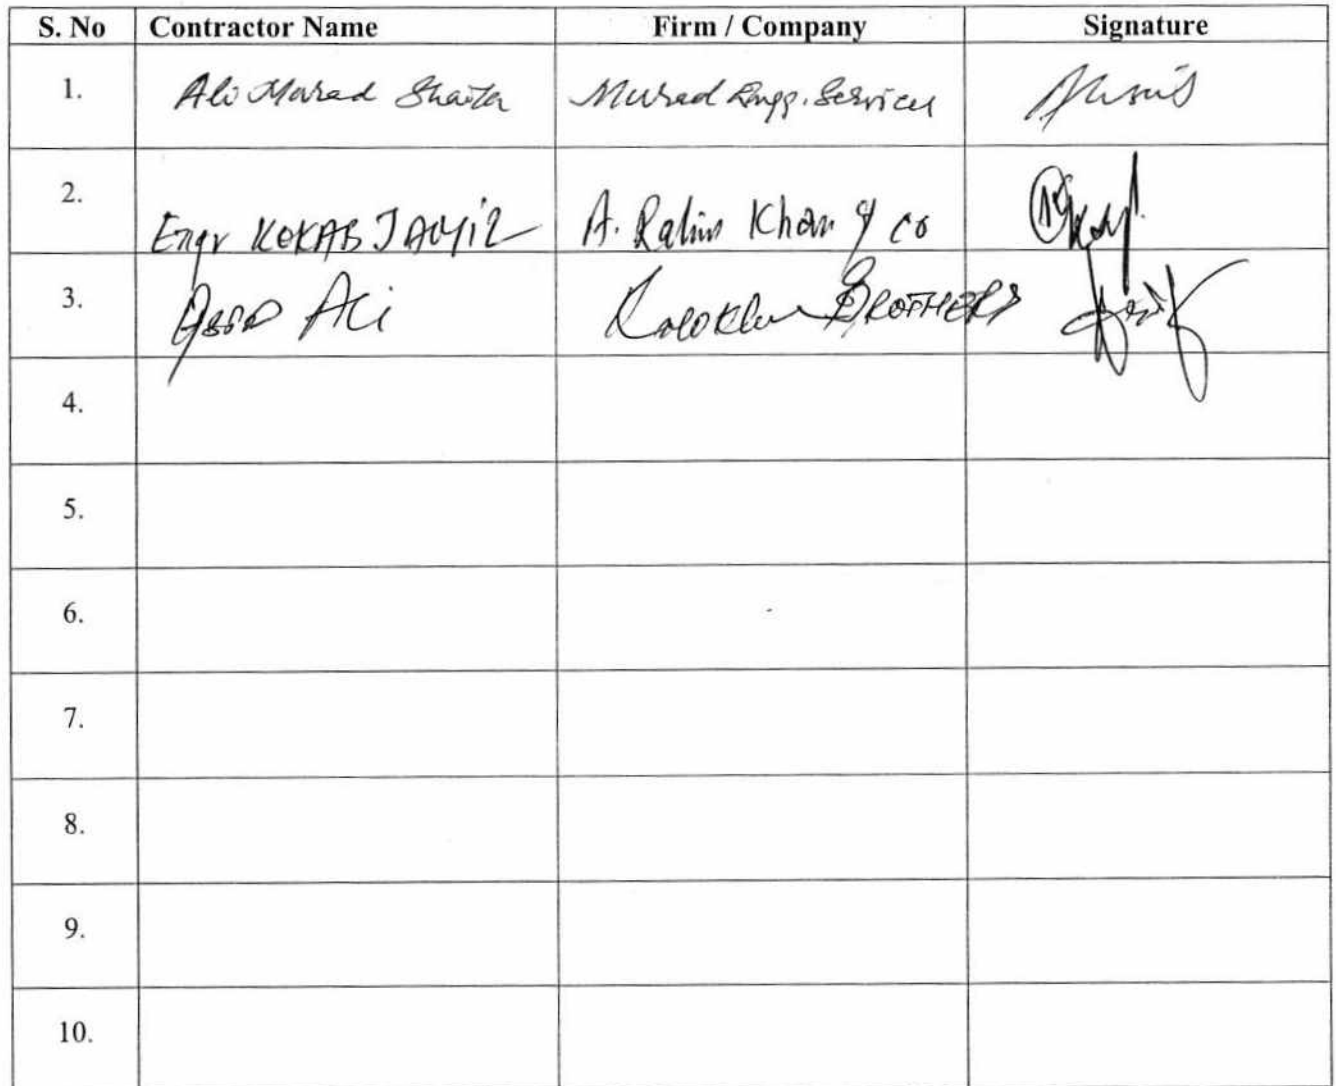 S. No Contractor Name Firm / Company Signature
1. Ali Murad Murad Engg. Services
2. Engr KOKAB JAMIL A. Rahim Khan & co
3. Asad Ali BROTHERS
4.
5.
6.
7.
8.
9.
10.